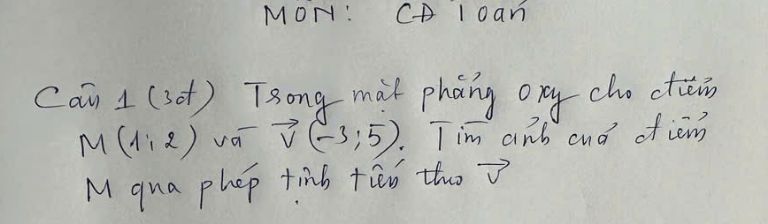 MÔN: CĐ Toán
Câu 1 (3đ) Trong mặt phẳng oxy cho điểm
M(1;2) và v⃗(-3;5). Tìm ảnh của điểm
M qua phép tịnh tiến theo v⃗